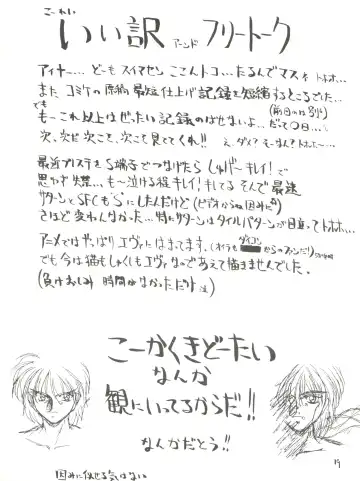 こーれい
いい訳 アーンド フリートーク
アイヤー… どーも スイマセン ここんトコ… たるんでマスネ トホホ…
また コミケの原稿 最短仕上げ記録を短縮するところでした…
でも (前日つーは別ね)
もーこれ以上はぜったい記録のばせないよ…だって○日…
次、次だ 次こそ、次こそ見ててくれ!! え、ダメ? そーなん? トホホ〜…
最近プレステをS端子でつなげたら しゅげーキレイ!で
思わず 失禁… も〜泣ける程キレイ! キレてる そんで 最速
サターンとSFCも"S"にしたんだけど (ビデオからね 因みに)
さほど変わんなかった… 特にサターンはタイルパターンが目立ってトホホ…
アニメではやっぱりエヴァにはまってます。 (オイラも ダイコンからのファンだり)
でも今は猫もしゃくしもエヴァなのであえて描きませんでした。
(負けおしみ 時間がなかっただけ)
こーかくきどーたい
なんか
観にいってるからだ!!
なんだとう!!
因みに似せる気はない
19